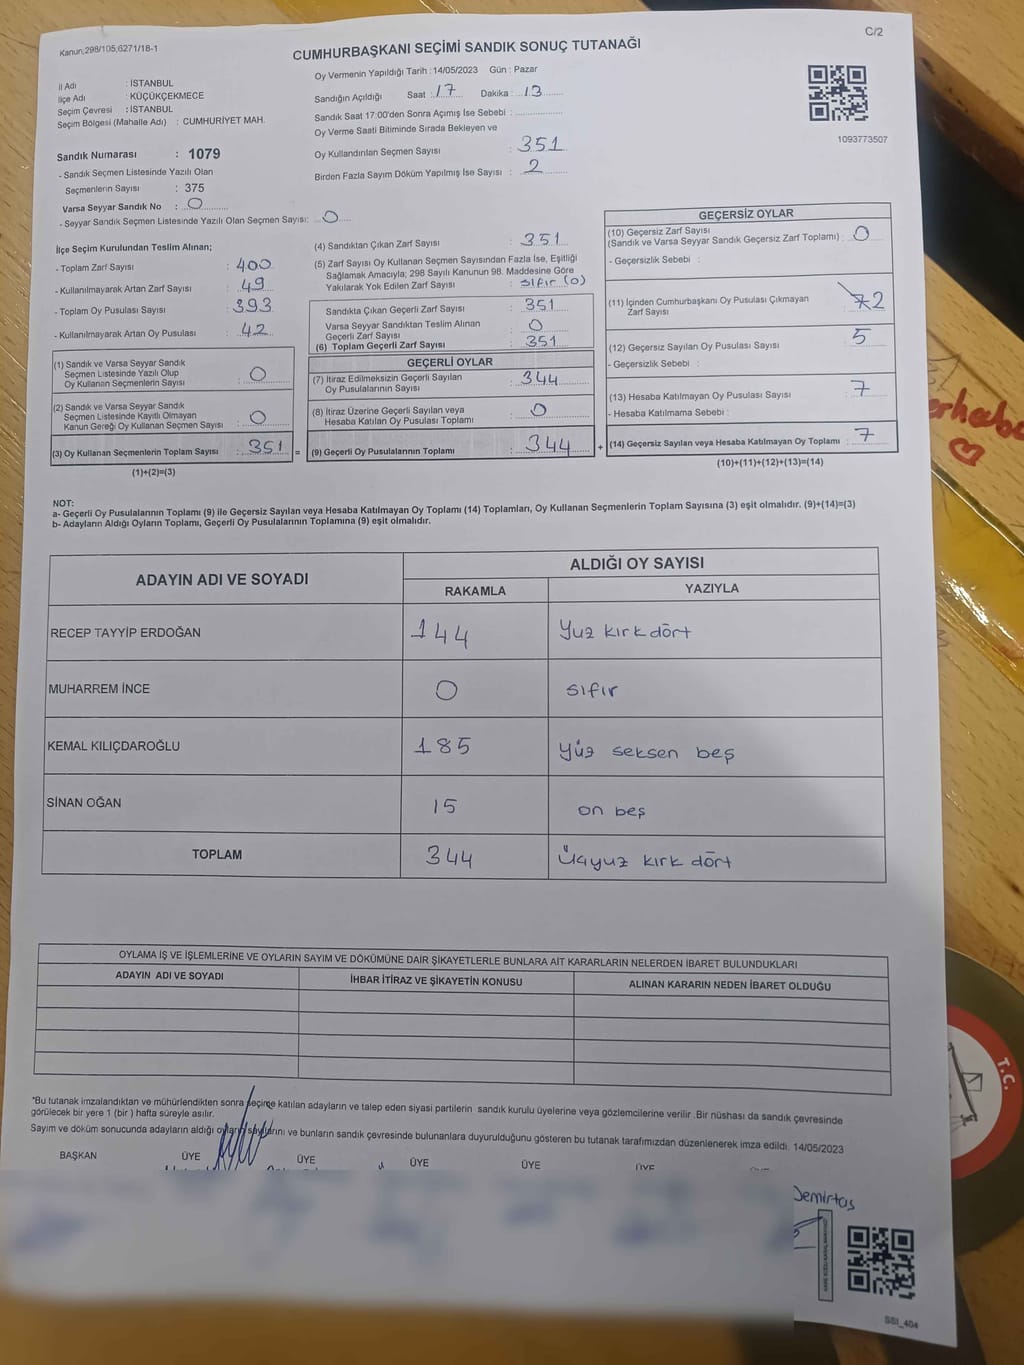 C/2
Kanun:298/105;6271/18-1
CUMHURBAŞKANI SEÇİMİ SANDIK SONUÇ TUTANAĞI
İl Adı : İSTANBUL
İlçe Adı : KÜÇÜKÇEKMECE
Seçim Çevresi : İSTANBUL
Seçim Bölgesi (Mahalle Adı) : CUMHURİYET MAH.
Oy Vermenin Yapıldığı Tarih : 14/05/2023 Gün : Pazar
Sandığın Açıldığı Saat : 17 Dakika : 13
Sandık Saat 17:00'den Sonra Açımış İse Sebebi :
Oy Verme Saati Bitiminde Sırada Bekleyen ve
Oy Kullandırılan Seçmen Sayısı : 351
Birden Fazla Sayım Döküm Yapılmış İse Sayısı : 2
1093773507
Sandık Numarası : 1079
- Sandık Seçmen Listesinde Yazılı Olan
Seçmenlerin Sayısı : 375
Varsa Seyyar Sandık No : 0
- Seyyar Sandık Seçmen Listesinde Yazılı Olan Seçmen Sayısı: 0
İlçe Seçim Kurulundan Teslim Alınan;
- Toplam Zarf Sayısı : 400
- Kullanılmayarak Artan Zarf Sayısı : 49
- Toplam Oy Pusulası Sayısı : 393
- Kullanılmayarak Artan Oy Pusulası : 42
(1) Sandık ve Varsa Seyyar Sandık
Seçmen Listesinde Yazılı Olup
Oy Kullanan Seçmenlerin Sayısı : 0
(2) Sandık ve Varsa Seyyar Sandık
Seçmen Listesinde Kayıtlı Olmayan
Kanun Gereği Oy Kullanan Seçmen Sayısı : 0
(3) Oy Kullanan Seçmenlerin Toplam Sayısı : 351 =
(1)+(2)=(3)
(4) Sandıktan Çıkan Zarf Sayısı : 351
(5) Zarf Sayısı Oy Kullanan Seçmen Sayısından Fazla İse, Eşitliği
Sağlamak Amacıyla; 298 Sayılı Kanunun 98. Maddesine Göre
Yakılarak Yok Edilen Zarf Sayısı : sıfır (0)
Sandıkta Çıkan Geçerli Zarf Sayısı : 351
Varsa Seyyar Sandıktan Teslim Alınan
Geçerli Zarf Sayısı : 0
(6) Toplam Geçerli Zarf Sayısı : 351
GEÇERLİ OYLAR
(7) İtiraz Edilmeksizin Geçerli Sayılan
Oy Pusulalarının Sayısı : 344
(8) İtiraz Üzerine Geçerli Sayılan veya
Hesaba Katılan Oy Pusulası Toplamı : 0
(9) Geçerli Oy Pusulalarının Toplamı : 344 +
GEÇERSİZ OYLAR
(10) Geçersiz Zarf Sayısı
(Sandık ve Varsa Seyyar Sandık Geçersiz Zarf Toplamı) : 0
- Geçersizlik Sebebi :
(11) İçinden Cumhurbaşkanı Oy Pusulası Çıkmayan
Zarf Sayısı : 2
(12) Geçersiz Sayılan Oy Pusulası Sayısı : 5
- Geçersizlik Sebebi :
(13) Hesaba Katılmayan Oy Pusulası Sayısı : 7
- Hesaba Katılmama Sebebi :
(14) Geçersiz Sayılan veya Hesaba Katılmayan Oy Toplamı : 7
(10)+(11)+(12)+(13)=(14)
NOT:
a- Geçerli Oy Pusulalarının Toplamı (9) ile Geçersiz Sayılan veya Hesaba Katılmayan Oy Toplamı (14) Toplamları, Oy Kullanan Seçmenlerin Toplam Sayısına (3) eşit olmalıdır. (9)+(14)=(3)
b- Adayların Aldığı Oyların Toplamı, Geçerli Oy Pusulalarının Toplamına (9) eşit olmalıdır.
ADAYIN ADI VE SOYADI
ALDIĞI OY SAYISI
RAKAMLA YAZIYLA
RECEP TAYYİP ERDOĞAN 144 Yuz kırk dört
MUHARREM İNCE 0 sıfır
KEMAL KILIÇDAROĞLU 185 Yüz seksen beş
SİNAN OĞAN 15 on beş
TOPLAM 344 Üçyuz kırk dört
OYLAMA İŞ VE İŞLEMLERİNE VE OYLARIN SAYIM VE DÖKÜMÜNE DAİR ŞİKAYETLERLE BUNLARA AİT KARARLARIN NELERDEN İBARET BULUNDUKLARI
ADAYIN ADI VE SOYADI İHBAR İTİRAZ VE ŞİKAYETİN KONUSU ALINAN KARARIN NEDEN İBARET OLDUĞU
*Bu tutanak imzalandıktan ve mühürlendikten sonra seçime katılan adayların ve talep eden siyasi partilerin sandık kurulu üyelerine veya gözlemcilerine verilir. Bir nüshası da sandık çevresinde
görülecek bir yere 1 (bir) hafta süreyle asılır.
Sayım ve döküm sonucunda adayların aldığı oyların sayılarını ve bunların sandık çevresinde bulunanlara duyurulduğunu gösteren bu tutanak tarafımızdan düzenlenerek imza edildi. 14/05/2023
BAŞKAN ÜYE ÜYE ÜYE ÜYE ÜYE
Demirtaş
SSI_404
T.C.